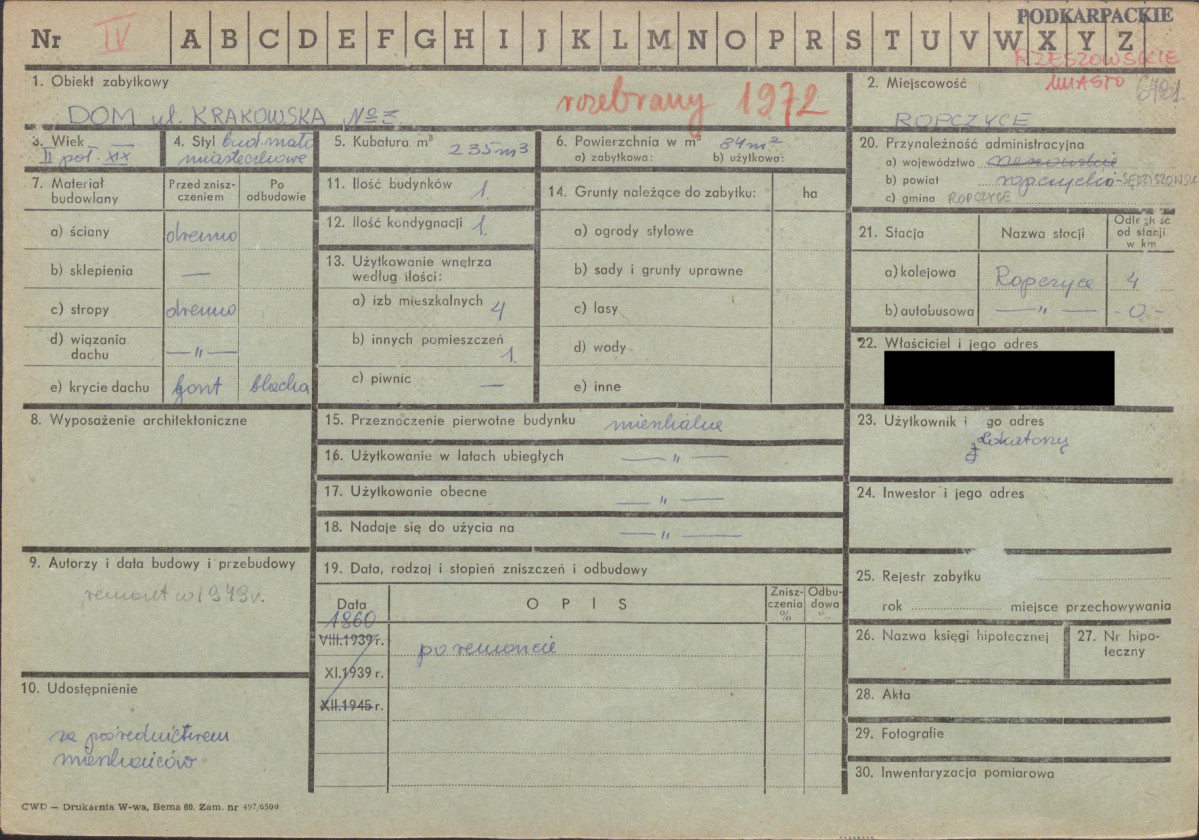 PODKARPACKIE
Nr IV A B C D E F G H I J K L M N O P R S T U V W X Y Z
RZESZOWSKIE
MIASTO
1. Obiekt zabytkowy
DOM ul. KRAKOWSKA №
rozebrany 1972
2. Miejscowość
ROPCZYCE
3. Wiek
II poł. XIX
4. Styl bud. mało
miasteczkowe
5. Kubatura m³ 235 m3
6. Powierzchnia w m² 84 m²
a) zabytkowa: b) użytkowa:
20. Przynależność administracyjna
a) województwo rzeszowskie
b) powiat ropczycko-SĘDZISZOWSKI
c) gmina ROPCZYCE
7. Materiał budowlany
Przed zniszczeniem
Po odbudowie
a) ściany drewno
b) sklepienia —
c) stropy drewno
d) wiązania dachu — " —
e) krycie dachu gont blacha
11. Ilość budynków 1.
12. Ilość kondygnacji 1.
13. Użytkowanie wnętrza
według ilości:
a) izb mieszkalnych 4
b) innych pomieszczeń 1.
c) piwnic —
14. Grunty należące do zabytku: ha
a) ogrody stylowe
b) sady i grunty uprawne
c) lasy
d) wody
e) inne
21. Stacja Nazwa stacji Odległość od stacji w km
a) kolejowa Ropczyce 4
b) autobusowa — " — - 0 -
22. Właściciel i jego adres
8. Wyposażenie architektoniczne
15. Przeznoczenie pierwotne budynku mieszkalne
16. Użytkowanie w latach ubiegłych — " —
17. Użytkowanie obecne — " —
18. Nadaje się do użycia na — " —
23. Użytkownik i go adres
lokatorzy
24. Inwestor i jego adres
9. Autorzy i data budowy i przebudowy
remont w 1949 r.
19. Data, rodzaj i stopień zniszczeń i odbudowy
Data OPIS Zniszczenia % Odbudowa %
1860
VIII.1939 r. po remoncie
XI.1939 r.
XII.1945 r.
25. Rejestr zabytku
rok miejsce przechowywania
26. Nazwa księgi hipotecznej
27. Nr hipoteczny
10. Udostępnienie
za pośrednictwem
mieszkańców
28. Akta
29. Fotografie
30. Inwentaryzacja pomiarowa
CWD — Drukarnia W-wa, Bema 60. Zam. nr 497/6500